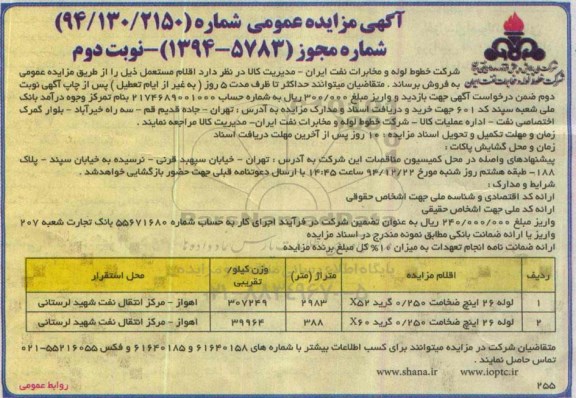 آگهی مزایده عمومی شماره (۹۴/۱۳۰/۲۱۵۰)
شماره مجوز (۵۷۸۳-۱۳۹۴)-نوبت دوم
شرکت خطوط لوله و مخابرات نفت ایران - مدیریت کالا در نظر دارد اقلام مستعمل ذیل را از طریق مزایده عمومی
به فروش برساند . متقاضیان میتوانند حداکثر تا ظرف مدت ۵ روز ( به غیر از ایام تعطیل ) پس از چاپ آگهی نوبت
دوم ضمن درخواست آگهی جهت بازدید و واریز مبلغ ۳۰۰/۰۰۰ ریال به شماره حساب ۲۱۷۴۶۸۹۰۰۱۰۰۰ بنام تمرکز وجوه درآمد بانک
ملی شعبه سپند کد ۶۰۱ جهت خرید و دریافت اسناد و مدارک مزایده به آدرس : تهران - جاده قدیم قم - سه راه خیرآباد - بلوار گمرک
اختصاصی نفت - اداره عملیات کالا - شرکت خطوط لوله و مخابرات نفت ایران- مدیریت کالا مراجعه نمایند .
زمان و مهلت تکمیل و تحویل اسناد مزایده : ۱۰ روز پس از آخرین مهلت دریافت اسناد
زمان و محل گشایش پاکات :
پیشنهادهای واصله در محل کمیسیون مناقصات این شرکت به آدرس : تهران - خیابان سپهبد قرنی - نرسیده به خیابان سپند - پلاک
۱۸۸- طبقه هشتم روز شنبه مورخ ۹۴/۱۲/۲۲ ساعت ۱۴:۴۵ با ارسال دعوتنامه قبلی جهت حضور بازگشایی خواهدشد .
شرایط و مدارک :
ارائه کد اقتصادی و شناسه ملی جهت اشخاص حقوقی
ارائه کد ملی جهت اشخاص حقیقی
واریز مبلغ ۲۴۰/۰۰۰/۰۰۰ ریال به عنوان تضمین شرکت در فرآیند اجرای کار به حساب شماره ۵۵۶۷۱۶۸۰ بانک تجارت شعبه ۲۰۷
واریز یا ارائه ضمانت بانکی مطابق نمونه مندرج در اسناد مزایده
ارائه ضمانت نامه انجام تعهدات به میزان ۱۰% کل مبلغ برنده مزایده
ردیف اقلام مزایده متراژ (متر) وزن کیلو/تقریبی محل استقرار
۱ لوله ۲۶ اینچ ضخامت ۰/۲۵۰ گرید X۵۲ ۲۹۸۳ ۳۰۷۲۴۹ اهواز - مرکز انتقال نفت شهید لرستانی
۲ لوله ۲۶ اینچ ضخامت ۰/۲۵۰ گرید X۶۰ ۳۸۸ ۳۹۹۶۴ اهواز - مرکز انتقال نفت شهید لرستانی
متقاضیان شرکت در مزایده میتوانند برای کسب اطلاعات بیشتر با شماره های ۶۱۶۴۰۱۵۸ و ۶۱۶۴۰۱۸۵ و فکس ۵۵۲۱۶۰۵۵-۰۲۱
تماس حاصل نمایند .
www.shana.ir www.ioptc.ir
۲۵۵ روابط عمومی